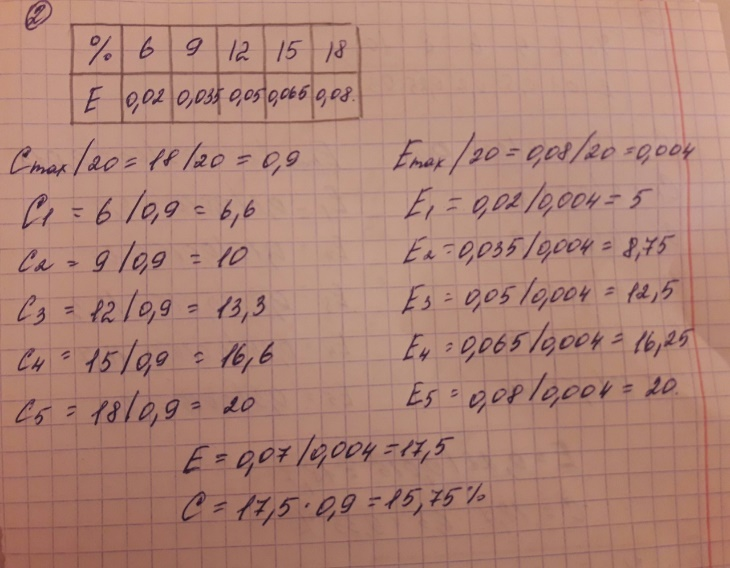 2
% 6 9 12 15 18
E 0,02 0,035 0,05 0,065 0,08
Cmax/20 = 18/20 = 0,9
C1 = 6/0,9 = 6,6
C2 = 9/0,9 = 10
C3 = 12/0,9 = 13,3
C4 = 15/0,9 = 16,6
C5 = 18/0,9 = 20
Emax/20 = 0,08/20 = 0,004
E1 = 0,02/0,004 = 5
E2 = 0,035/0,004 = 8,75
E3 = 0,05/0,004 = 12,5
E4 = 0,065/0,004 = 16,25
E5 = 0,08/0,004 = 20.
E = 0,07/0,004 = 17,5
C = 17,5 · 0,9 = 15,75%